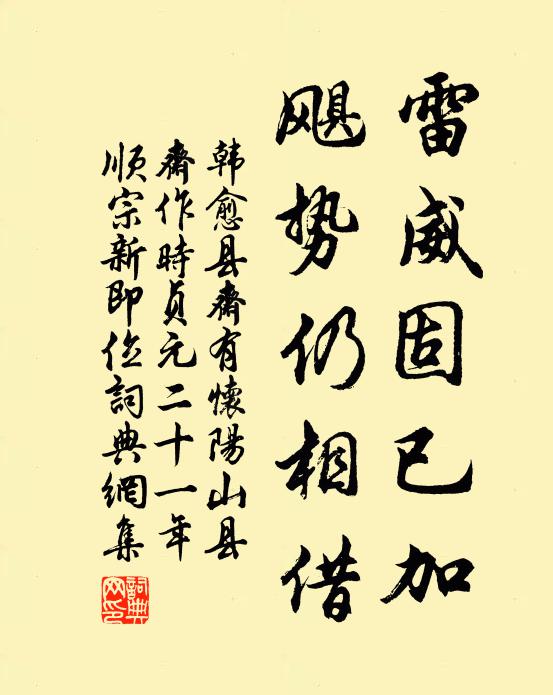 雷威固已加
飓势仍相借
韩愈县斋有懷陽山县
斋作時貞元二十一年
順宗新即位詞典網集
詞典網印